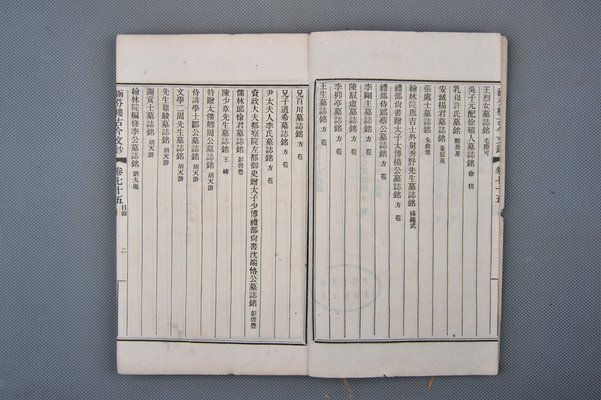 王烈女墓誌銘 毛際可
吳子元配徐碩人墓誌銘 徐枋
乳母許氏墓誌銘 顧景星
安城楊君墓誌銘 姜宸英
張處士墓誌銘 朱彝尊
翰林院庶吉士外舅秀野先生墓誌銘 楊繩武
禮部尚書贈太子太傅楊公墓誌銘 方苞
禮部侍郎蔡公墓誌銘 方苞
陳馭虛墓誌銘 方苞
李剛主墓誌銘 方苞
李抑亭墓誌銘 方苞
王生墓誌銘 方苞
兄百川墓誌銘 方苞
兄子道希墓誌銘 方苞
尹太夫人李氏墓誌銘 方苞
資政大夫都察院左都御史贈太子少傅禮部尚書沈端恪公墓誌銘 彭啓豐
儒林郎徐君墓誌銘 彭啓豐
陳少章先生墓誌銘 王峻
特贈太僕卿周公墓誌銘 胡天游
侍講學士鄒公墓誌銘 胡天游
文學二周先生墓誌銘 胡天游
先生駱驗墓誌銘 胡天游
謝貢士墓誌銘 胡天游
翰林院編修李公墓誌銘 劉大櫆
涵芬樓古今文鈔 卷七十五 目錄 二